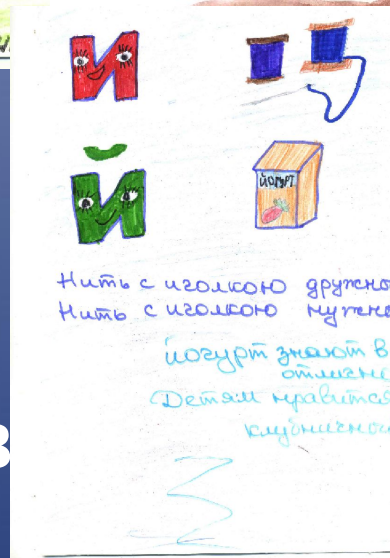 И
Й
йогурт
Нить с иголкою дружно
Нить с иголкою нужно
йогурт знают в
отлично
Детям нравится
клубничный